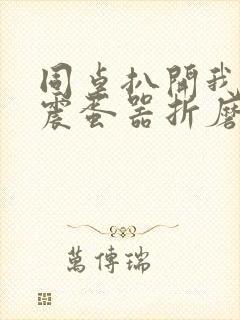 同桌扒開我
震蛋器折磨
萬傳瑞